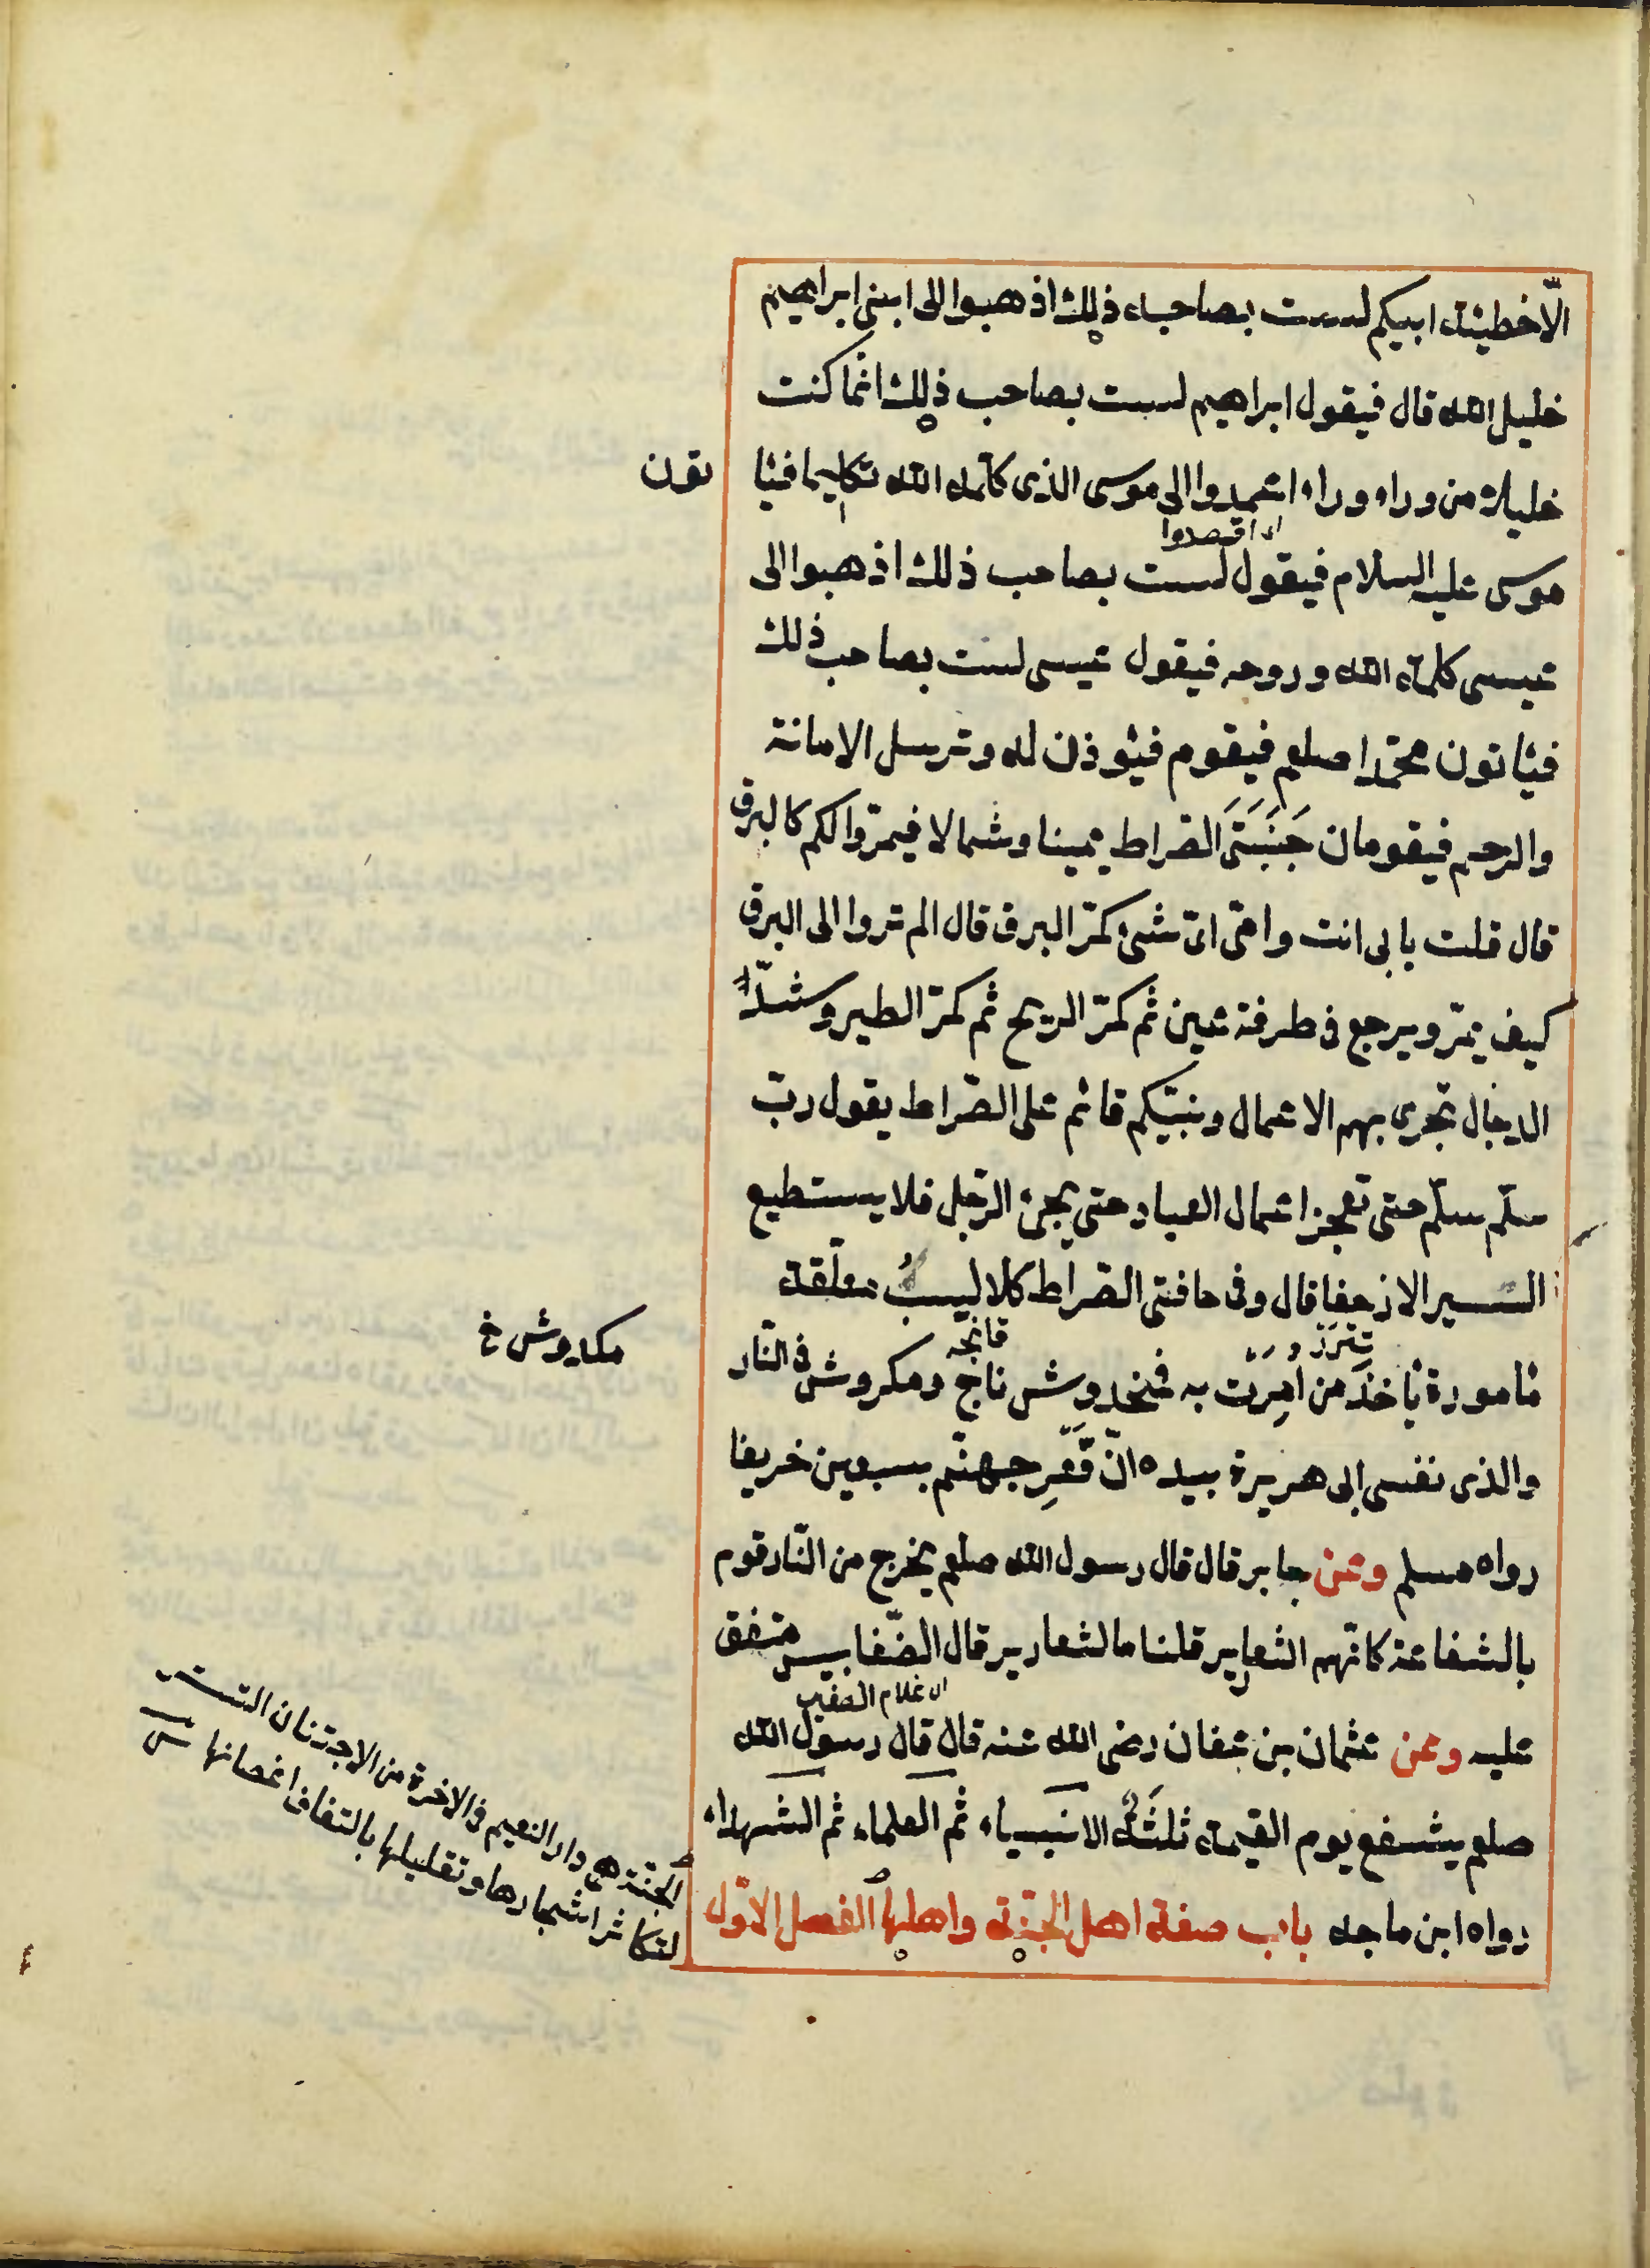 الّا خطيئة ابيكم لست بصاحب ذلك اذهبوا الى ابنى ابراهيم
خليل الله قال فيقول ابراهيم لست بصاحب ذلك انّما كنت
خليلا من وراء وراء اعمدوا الى موسى الذى كلّمه الله تكليما فيأ
تون
اى اقصدوا
موسى عليه السلام فيقول لست بصاحب ذلك اذهبوا الى
عيسى كلمة الله وروحه فيقول عيسى لست بصاحب ذلك
فيأتون محمّدا صلعم فيقوم فيؤذن له وترسل الامانة
والرحم فيقومان جَنَبَتَىِ الصّراط يمينا وشمالا فيمرّ اوّلكم كالبرق
قال قلت بابى انت وامّى اىّ شىء كمرّ البرق قال الم تروا الى البرق
كيف يمرّ ويرجع فى طرفة عين ثم كمرّ الريح ثم كمرّ الطير وشدّ
الرجال تجرى بهم الاعمال ونبيّكم قائم على الصّراط يقول ربّ
سلّم سلّم حتى تعجز اعمال العباد حتى يجئ الرّجل فلا يستطيع
السير الا زحفا قال وفى حافتى الصّراط كلاليبُ معلّقة
مأمورة تأخذ من اُمِرَت به فمخدوش ناج ومكروش فى النّار
مكدوش خ
والذى نفسى ابى هريرة بيده انّ قَعْرِ جهنّم سبعين خريفا
رواه مسلم وعن جابر قال قال رسول الله صلعم يخرج من النّار قوم
بالشفاعة كانّهم الثعارير قلنا ما لثعارير قال الضّغابيس متفق
عليه وعن عثمان بن عفان رضى الله عنه قال قال رسول الله
صلعم يشفع يوم القيمة ثلثةٌ الانبياء ثم العلماء ثم الشهداء
رواه ابن ماجه باب صفة اهل الجنّة واهلها الفصل الاوّل
الجنّة هى دار النعيم فى الاخرة من الاجتنان التستر
لتكاثر اشجارها وتظليلها بالتفاف اغصانها